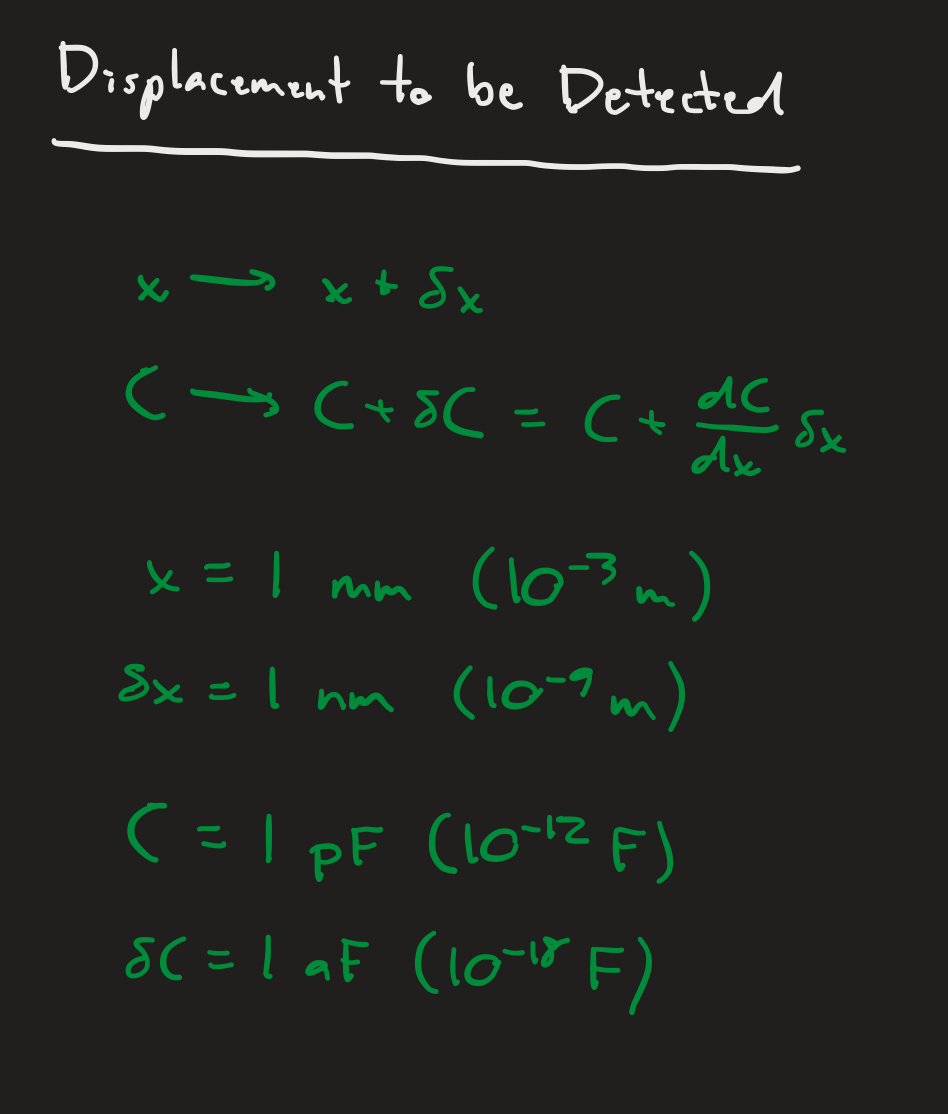 Displacement to be Detected
x → x + δx
C → C + δC = C + dC/dx δx
x = 1 mm (10⁻³ m)
δx = 1 nm (10⁻⁹ m)
C = 1 pF (10⁻¹² F)
δC = 1 aF (10⁻¹⁸ F)